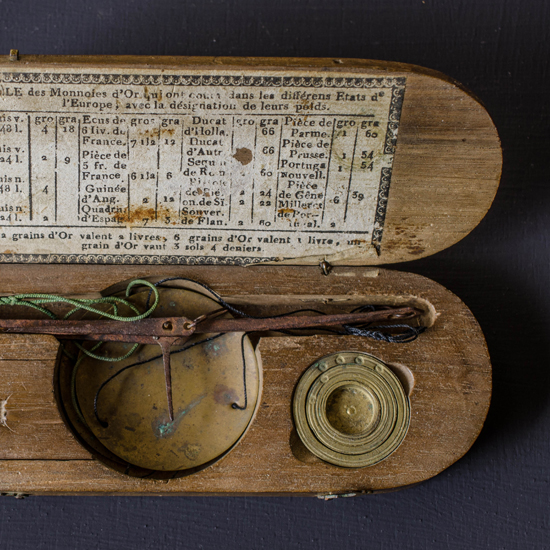 LE des Monnoies d'Or qui ont cours dans les différens Etats de
l'Europe, avec la désignation de leurs poids.
is v. gro gra Ecus de gro gra Ducat gro gra Pièce de gro gra
48 l. 4 18 6 liv. du d'Holla. 66 Parme. 1 60
France. 7 12 Ducat Pièce de
is v. Pièce de d'Autr. 66 Prusse. 1 54
24 l. 2 9 5 fr. de Portuga 1 54
France. 6 Nouvell.
is n. Guinée Pièce
48 l. 4 d'Ang. 2 12 24 de Gêne 6 39
is n. Quadru on. de Si. 2 22 Milleret
24 l. 2 d'Espa 7 Souver. de Por-
de Flan. 2 60
grains d'Or valent 2 livres, 6 grains d'Or valent 1 livre, un
grain d'Or vaut 3 sols 4 deniers.